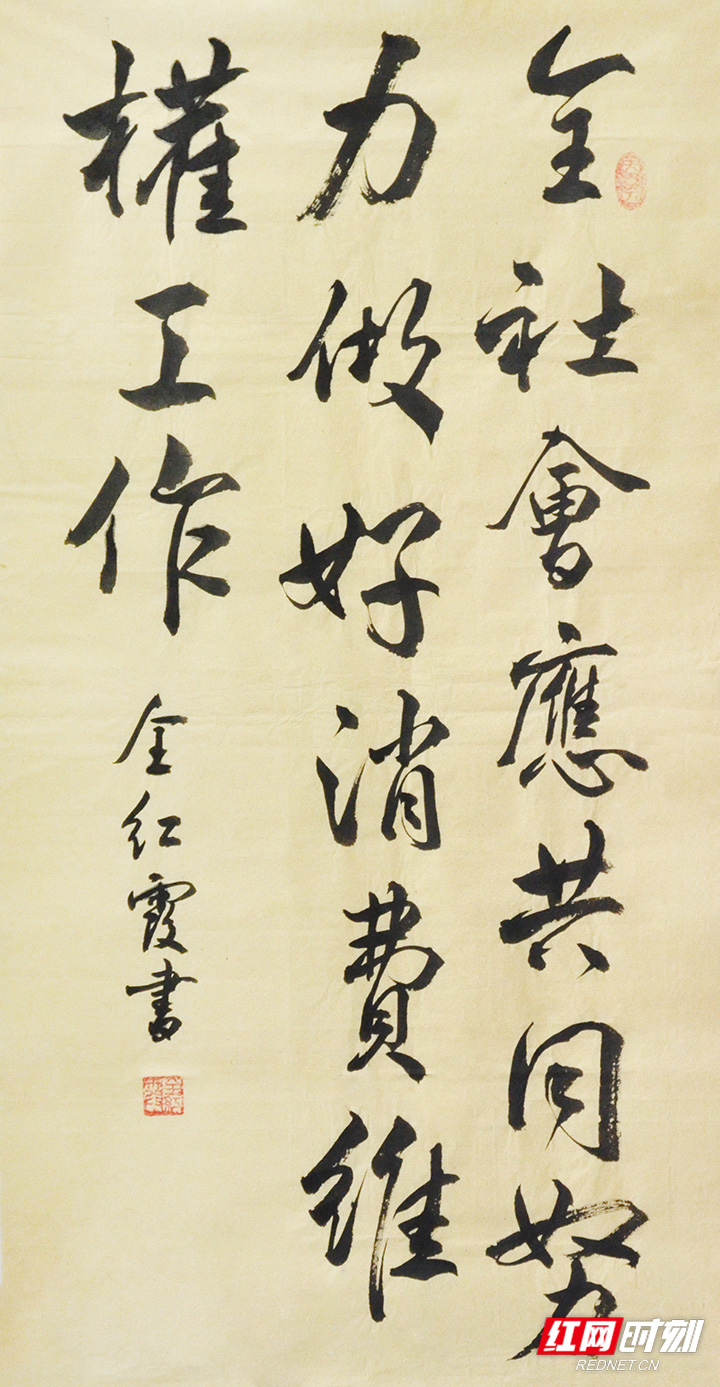 全社會應共同努
力做好消費維
權工作
全红霞書
红网时刻
REDNET.CN